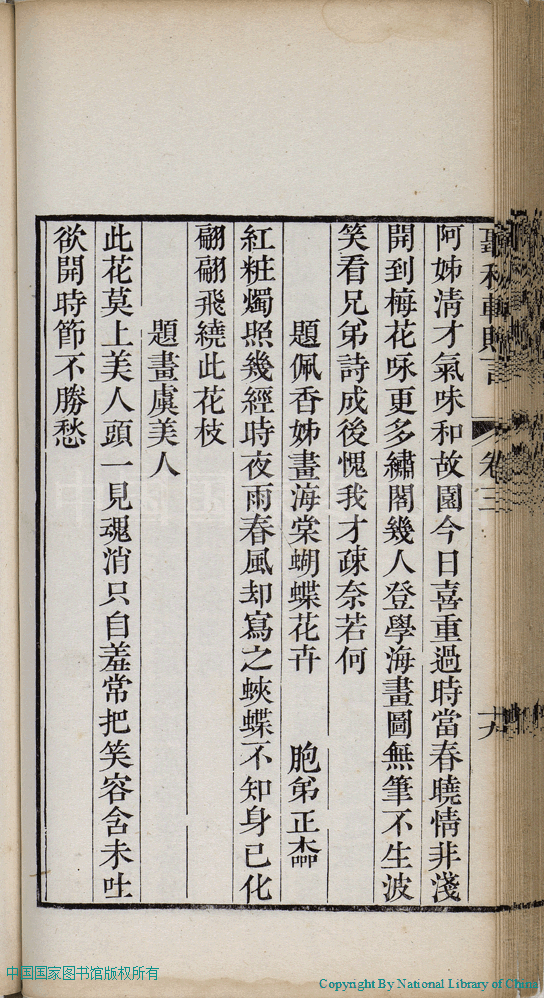 聽秋軒贈言 卷三 十六
阿姊淸才氣味和故園今日喜重過時當春曉情非淺
開到梅花咏更多繡閣幾人登學海畫圖無筆不生波
笑看兄弟詩成後愧我才疎奈若何
題佩香姊畫海棠蝴蝶花卉 胞弟正
紅粧燭照幾經時夜雨春風却寫之蛺蝶不知身已化
翩翩飛繞此花枝
題畫虞美人
此花莫上美人頭一見魂消只自羞常把笑容含未吐
欲開時節不勝愁
中国国家图书馆版权所有
Copyright By National Library of China